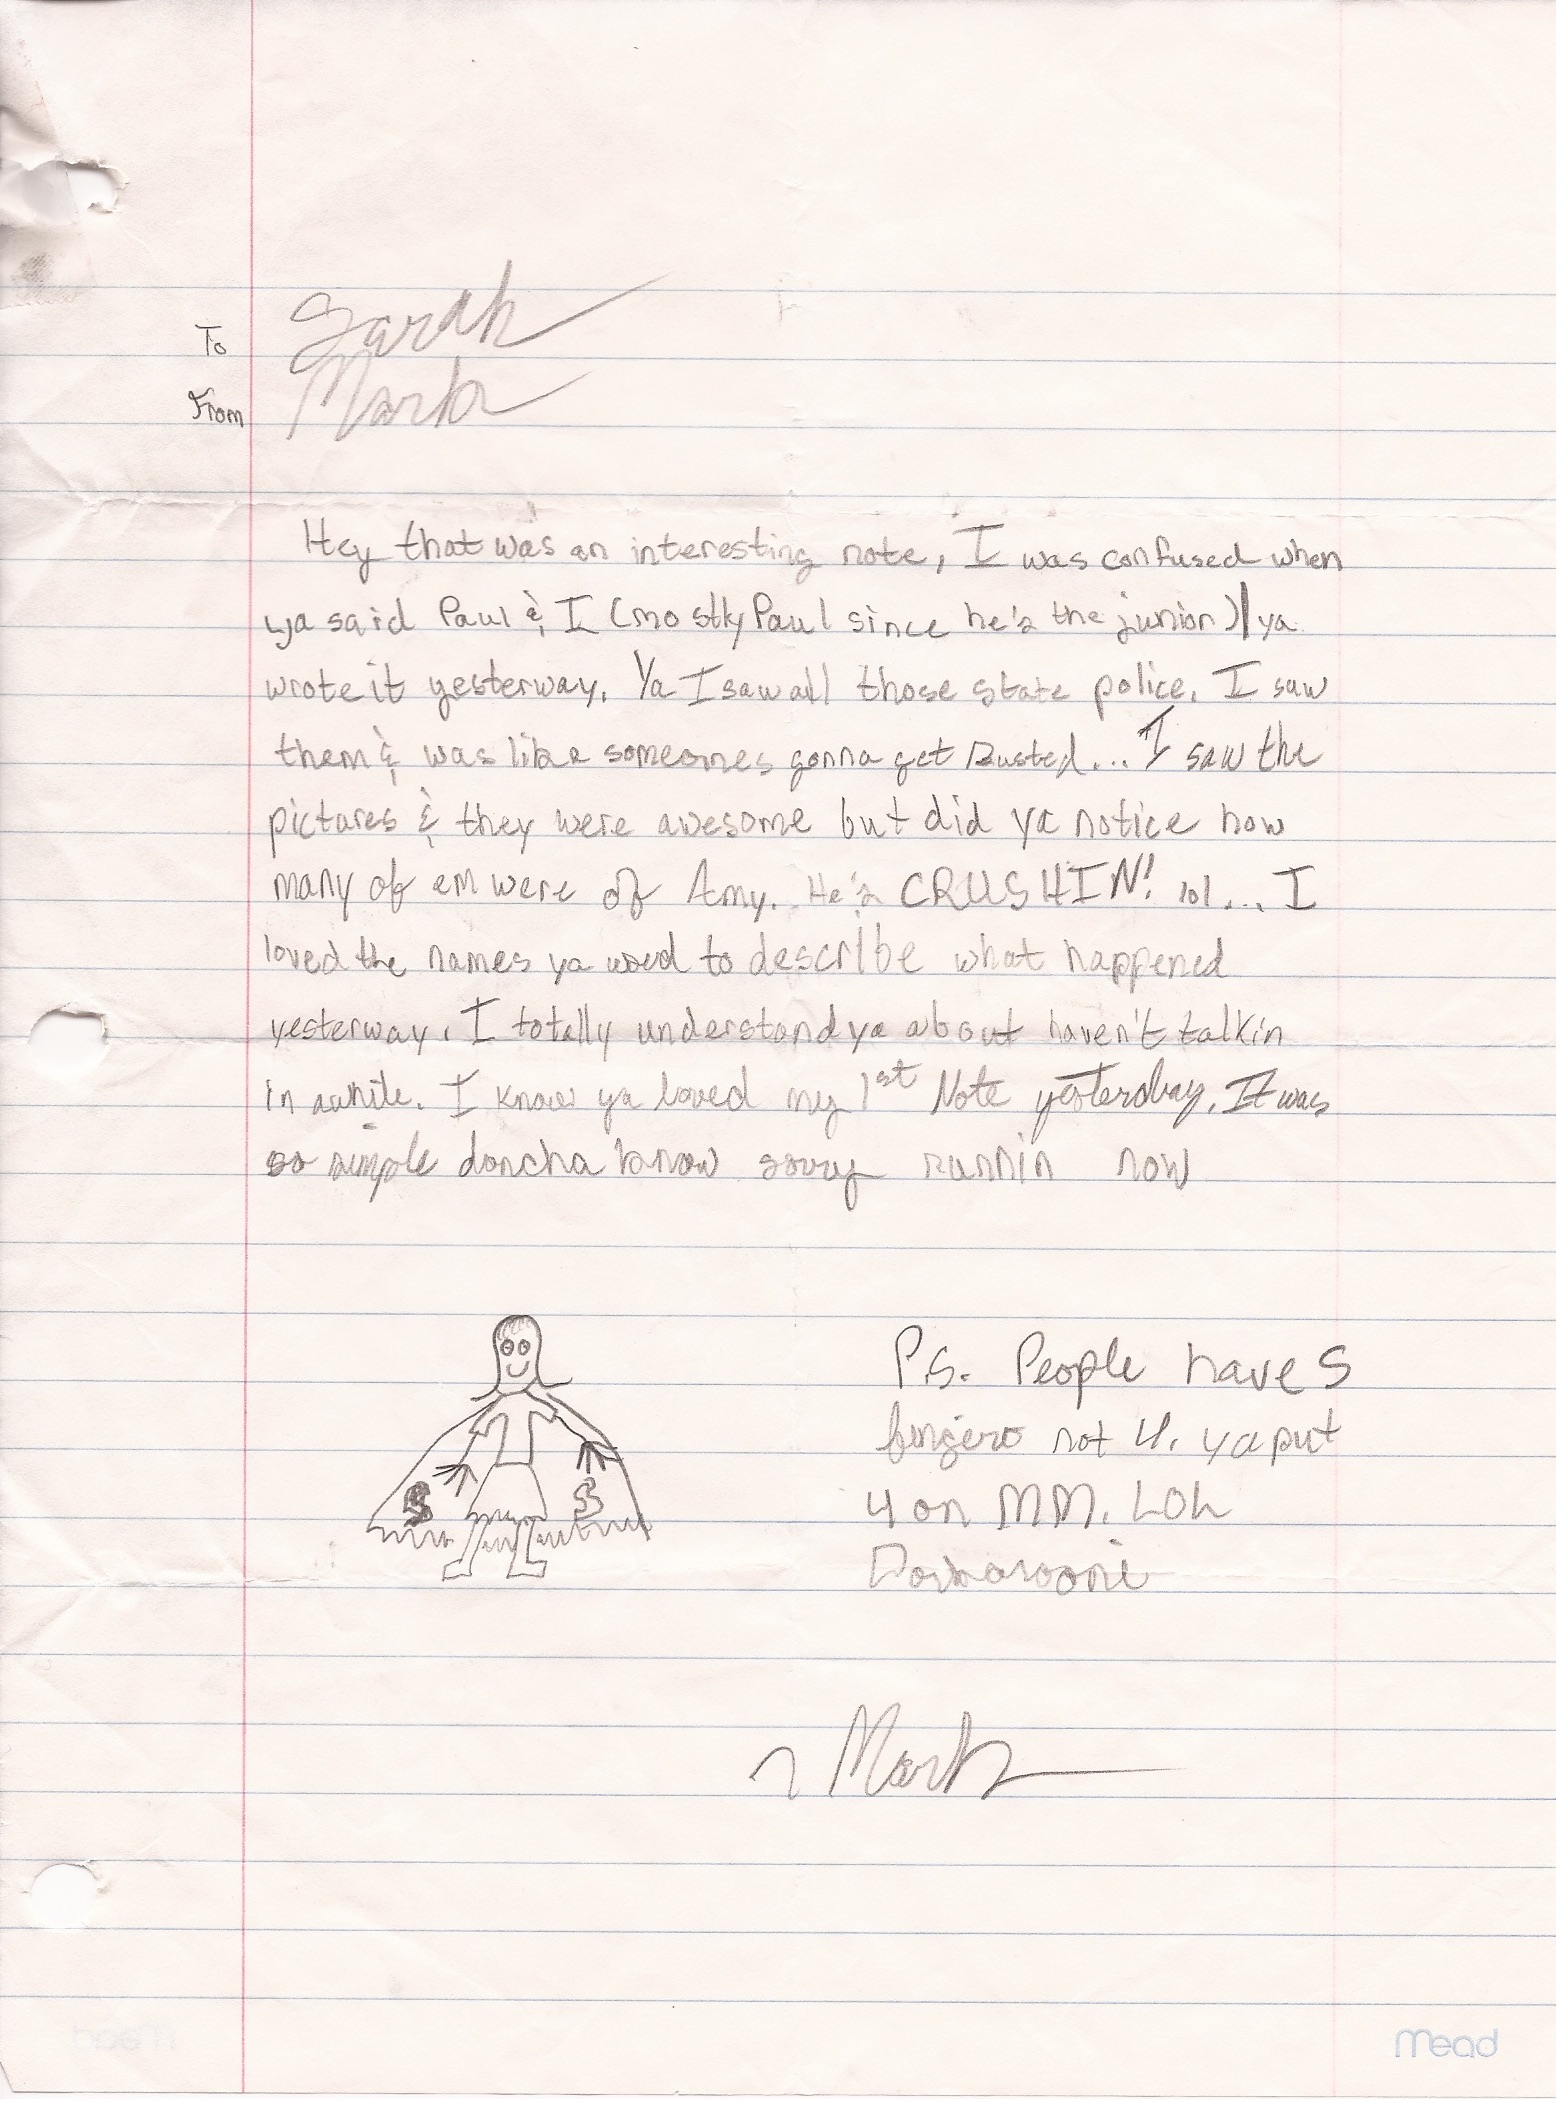 To Sarah
From Mark
Hey that was an interesting note, I was confused when
ya said Paul & I (mostly Paul since he's the junior) ya
wrote it yesterway. Ya I saw all those state police. I saw
them & was like someones gonna get Busted... I saw the
pictures & they were awesome but did ya notice how
many of em were of Amy. He's CRUSHIN! lol... I
loved the names ya used to describe what happened
yesterway. I totally understand ya about haven't talkin
in awhile. I know ya loved my 1st Note yesterday. It was
so simple doncha know sorry runnin now
P.S. People have 5
fingers not 4. ya put
4 on MM. LOL
$ $
~ Mark
Mead